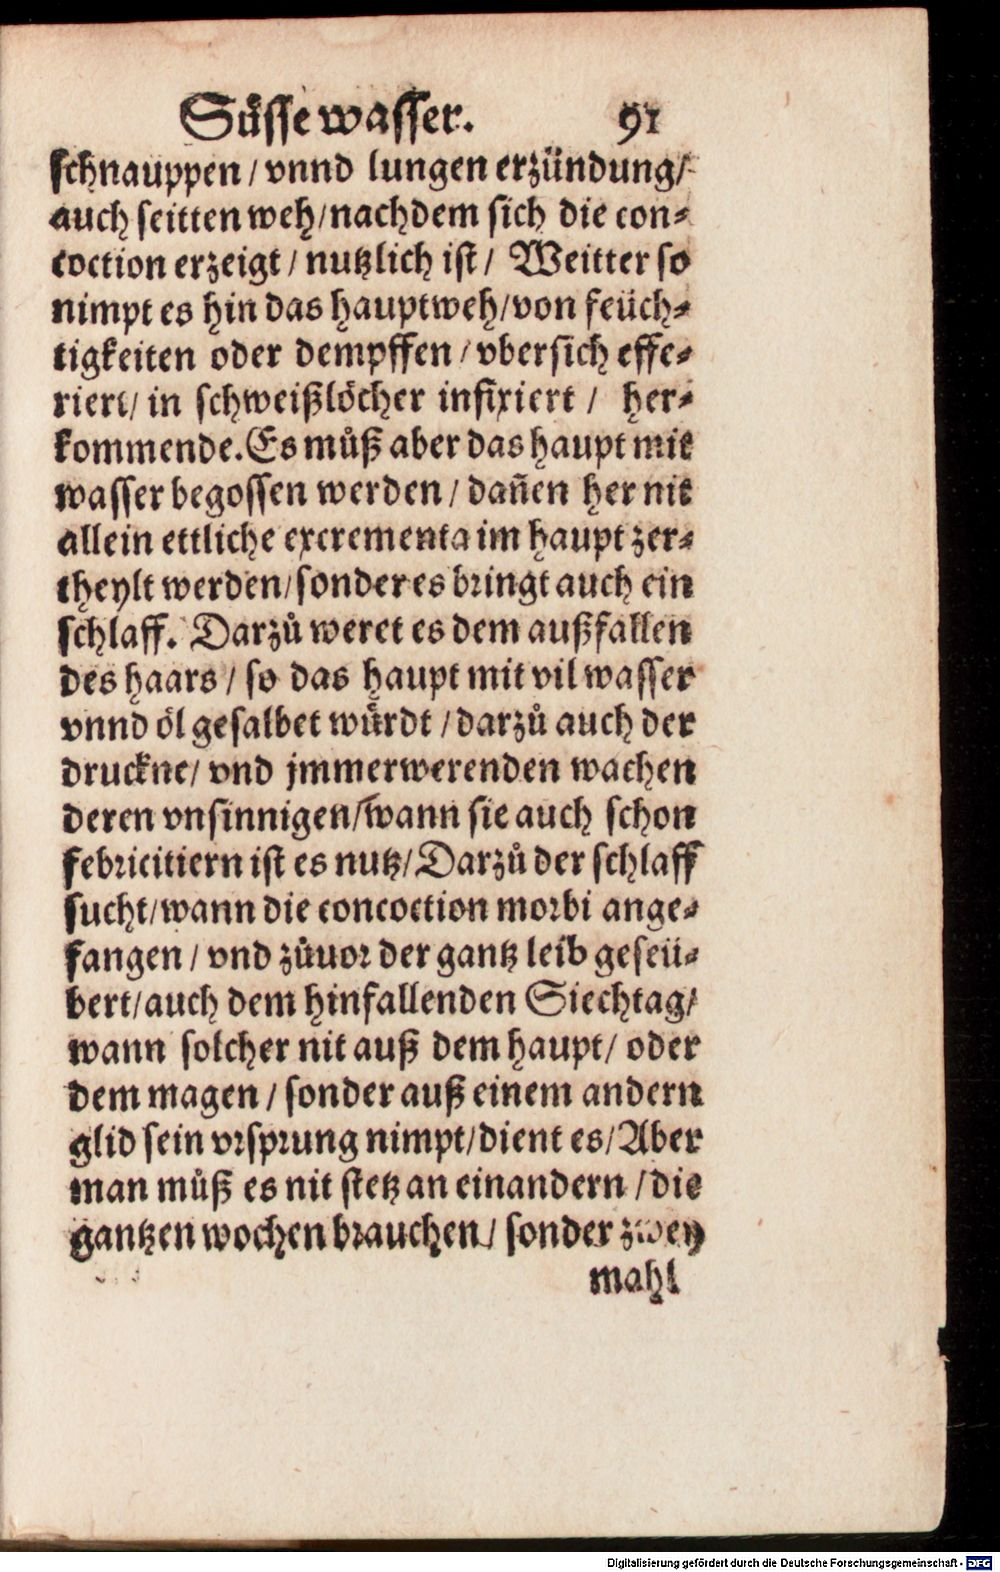 Süsse wasser. 91
schnauppen / vnnd lungen erzündung /
auch seitten weh / nachdem sich die con⸗
coction erzeigt / nutzlich ist / Weitter so
nimpt es hin das hauptweh / von feüch⸗
tigkeiten oder dempffen / vbersich effe⸗
riert / in schweißlöcher infixiert / her⸗
kommende. Es můß aber das haupt mit
wasser begossen werden / dañen her nit
allein ettliche excrementa im haupt zer⸗
theylt werden / sonder es bringt auch ein
schlaff. Darzů weret es dem außfallen
des haars / so das haupt mit vil wasser
vnnd öl gesalbet würdt / darzů auch der
druckne / vnd jmmerwerenden wachen
deren vnsinnigen / wann sie auch schon
febricitiern ist es nutz / Darzů der schlaff
sucht / wann die concoction morbi ange⸗
fangen / vnd zůuor der gantz leib geseü⸗
bert / auch dem hinfallenden Siechtag /
wann solcher nit auß dem haupt / oder
dem magen / sonder auß einem andern
glid sein vrsprung nimpt / dient es / Aber
man můß es nit stetz an einandern / die
gantzen wochen brauchen / sonder zwey
mahl
Digitalisierung gefördert durch die Deutsche Forschungsgemeinschaft - DFG